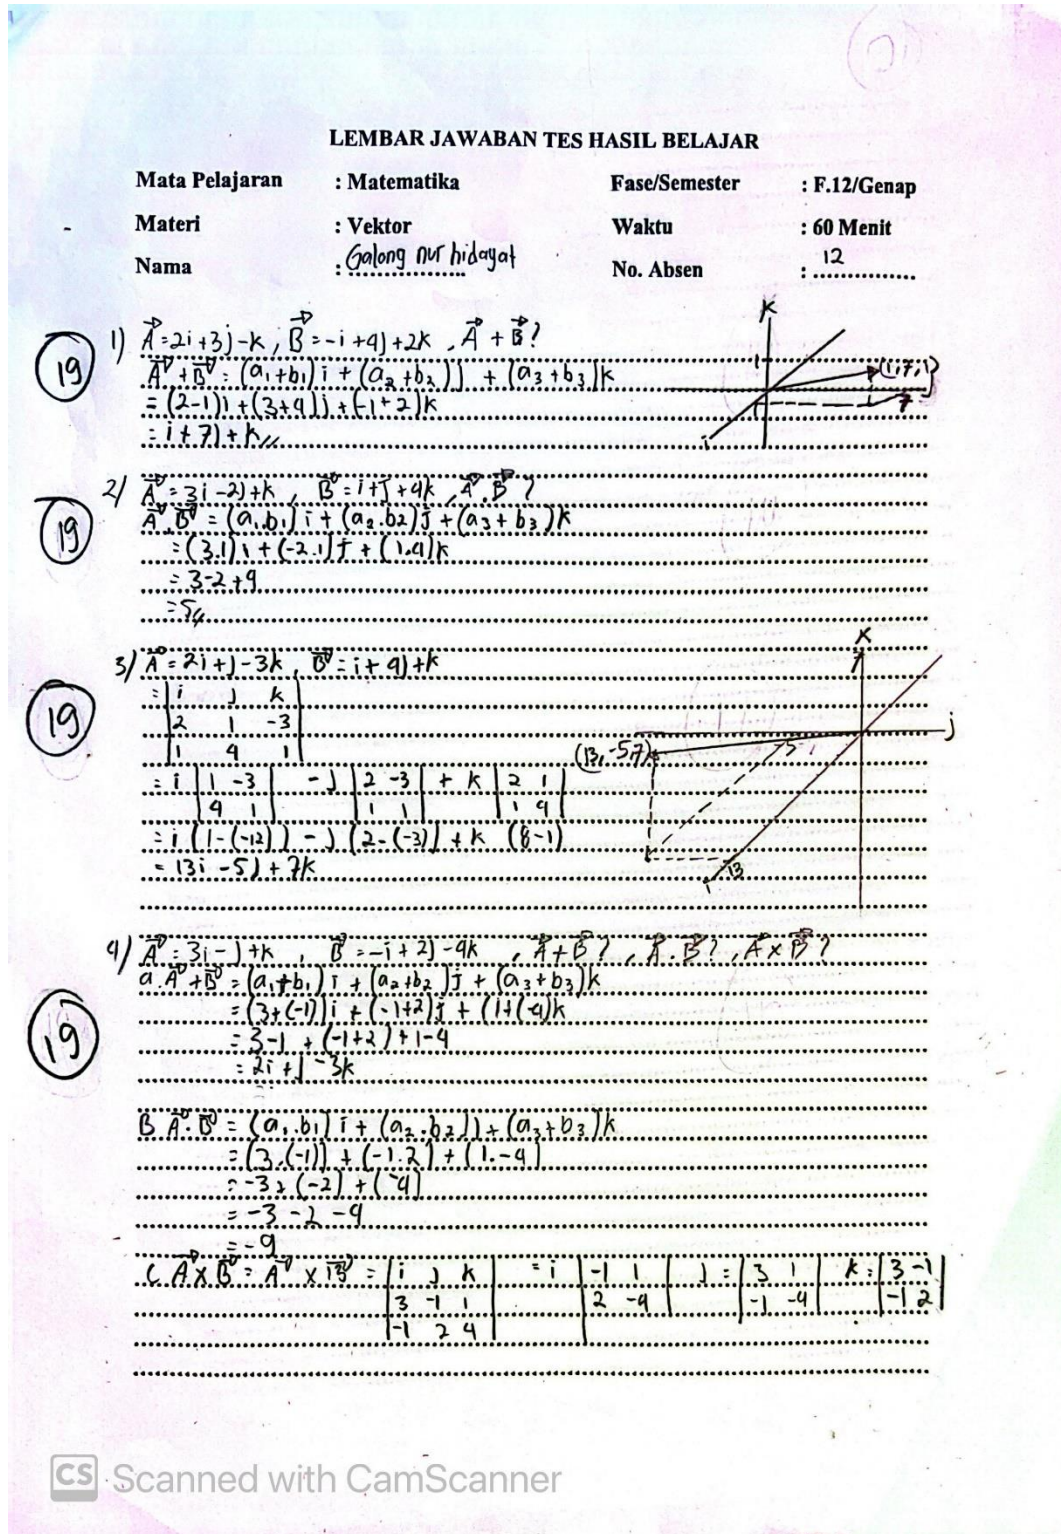 LEMBAR JAWABAN TES HASIL BELAJAR
Mata Pelajaran : Matematika Fase/Semester : F.12/Genap
Materi : Vektor Waktu : 60 Menit
Nama : Galong nur hidayat No. Absen : 12
19
1) A = 2i + 3j - k , B = -i + 4j + 2k , A + B ?
A + B = (a₁+b₁)i + (a₂+b₂)j + (a₃+b₃)k
= (2-1)i + (3+4)j + (-1+2)k
= i + 7j + k //
K
(1,7,1)
j
7
i
19
2) A = 3i - 2j + k , B = i + j + 4k , A . B ?
A . B = (a₁.b₁)i + (a₂.b₂)j + (a₃+b₃)k
= (3.1)i + (-2.1)j + (1.4)k
= 3-2+4
= 5//
19
3) A = 2i + j - 3k , B = i + 4j + k
= | i j k |
| 2 1 -3 |
| 1 4 1 |
= i | 1 -3 | - j | 2 -3 | + k | 2 1 |
| 4 1 | | 1 1 | | 1 4 |
= i (1-(-12)) - j (2-(-3)) + k (8-1)
= 13i - 5j + 7k
K
7
j
(13, -5,7)
-5
13
i
19
4) A = 3i - j + k , B = -i + 2j - 4k , A + B ? , A . B ? , A x B ?
a. A + B = (a₁+b₁)i + (a₂+b₂)j + (a₃+b₃)k
= (3+(-1))i + (-1+2)j + (1+(-4)k
= 3-1 + (-1+2) + 1-4
= 2i + j - 3k
B A . B = (a₁.b₁)i + (a₂.b₂)j + (a₃+b₃)k
= (3.(-1)) + (-1.2) + (1.-4)
= -3 + (-2) + (-4)
= -3 - 2 - 4
= -9
C. A x B = A x B = | i j k | = i | -1 1 | j = | 3 1 | k = | 3 -1 |
| 3 -1 1 | | 2 -4 | | -1 -4 | | -1 2 |
| -1 2 4 |
CS Scanned with CamScanner